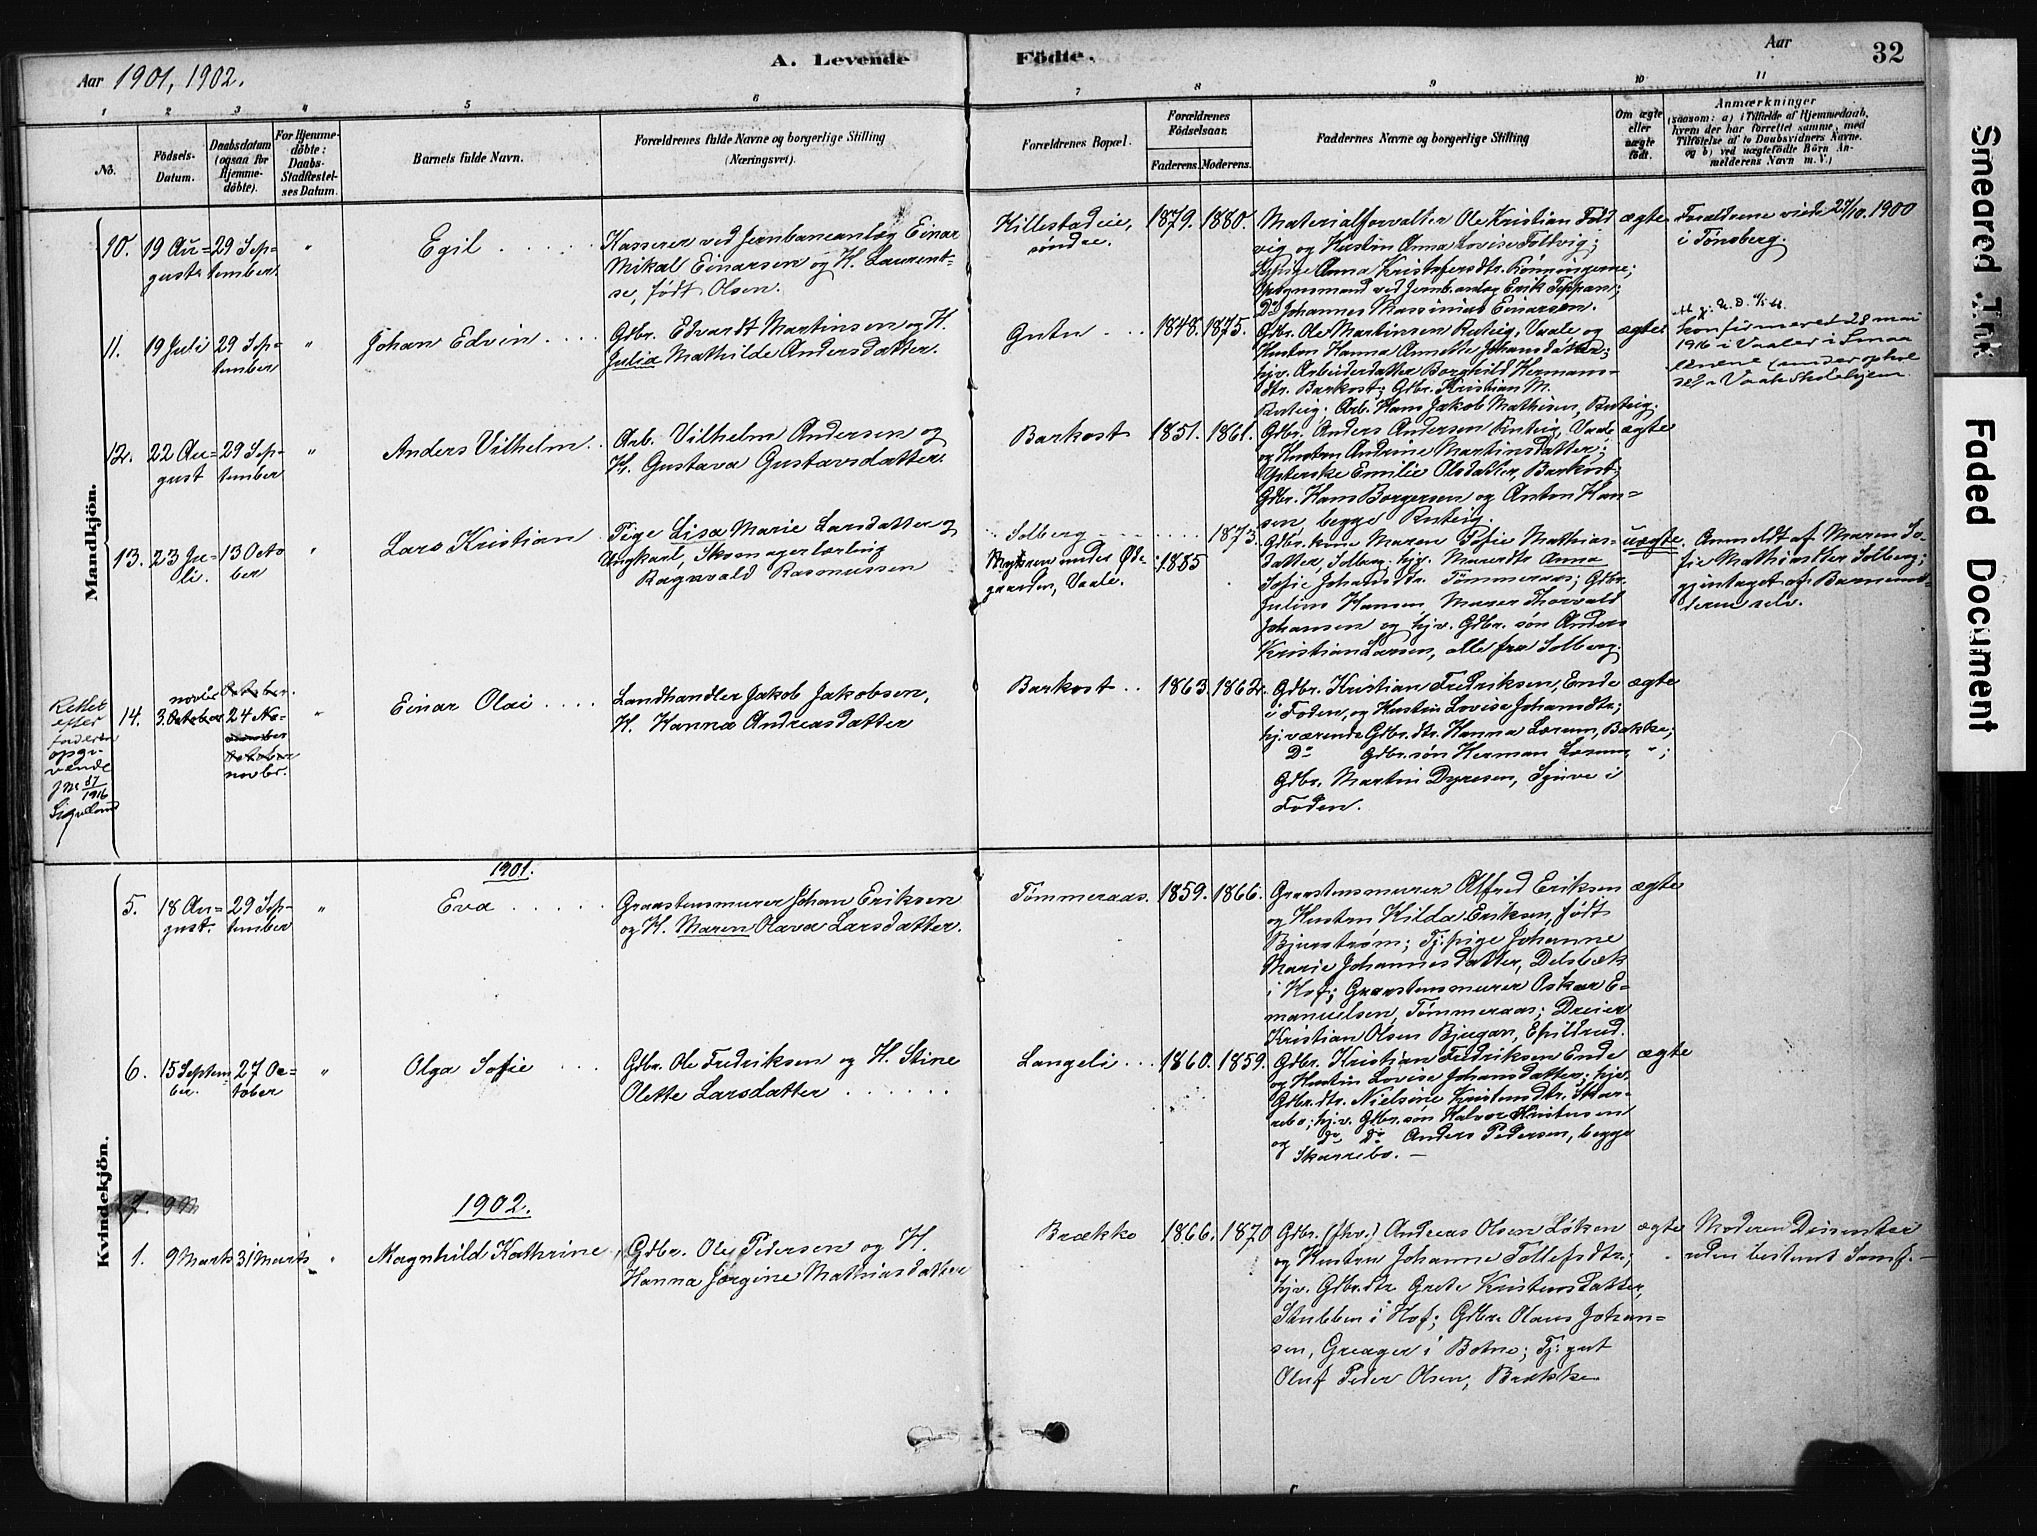 Aar 1901, 1902.
A. Levende
Födte.
Aar
32
1 2 3 4 5 6 7 8 9 10 11
No.
Födsels-
Datum.
Daabsdatum
(ogsaa for
Hjemme-
döbte).
For Hjemme-
döbte:
Daabs-
Stadfæstel-
ses Datum.
Barnets fulde Navn.
Forældrenes fulde Navne og borgerlige Stilling
(Næringsvei).
Forældrenes Bopæl.
Forældrenes
Födselsaar.
Faderens. Moderens.
Faddernes Navne og borgerlige Stilling
Om ægte
eller
uægte
födt.
Anmærkninger
(saasom: a) i Tilfælde af Hjemmedaab,
hvem der har forrettet samme, med
Tilföielse af to Daabsvidners Navne,
og b) ved uægtefödte Börn An-
melderens Navn m. V.)
Mandkjön.
10.
19 Au-
gust
29 Sep-
tember.
"
Egil
Kasserer ved Jernbaneanlæg Einar
Mikal Einarsen og H. Laurent-
se, født Olsen.
Hillestadeie,
søndre.
1879. 1880.
Materialforvalter Ole Kristian Fold
vig og Hustru Anna Lovise Foldvig;
Pige Anna Kristofersdtr. Rønningerne;
Opsynsmand ved Jernb.anlæg Erik Teppan;
Do Johannes Massinius Einarsen.
ægte
Forældrene viede 28/10. 1900
i Tønsberg.
11.
19 Juli
29 Sep-
tember
"
Johan Edvin
Gdbr. Edvardt Martinsen og H.
Julia Mathilde Andersdatter.
1848. 1875.
Gdbr. Ole Martinsen Rutig, Vaale og
Hustru Hanna Annette Johansdatter;
hjv. Arbeiderdatter Borghild Hermans-
dtr. Barkost; Gdbr. Kristian M.
Rutig; Arb. Hans Jakob Mathisen, Rutig.
ægte
konfirmeret 28 mai
1916 i Vaaler i Smaa
lenene (under ophol
det i Vaale Skolehjem.
12.
22 Au-
gust
29 Sep-
tember
"
Anders Vilhelm
Arb. Vilhelm Andersen og
H. Gustava Gustavsdatter.
Barkost
1851. 1861.
Gdbr. Anders Andersen Rutig, Vaale
og Hustru Andrine Martinsdatter;
Emilie Olsdatter, Barkost;
Gdbr. Hans Borgersen og Anton Han-
sen, begge Rutig.
ægte
13.
23 Ju-
li.
13 Octo
ber
"
Lars Kristian
Pige Lisa Marie Larsdatter og
Ungkarl, Skomagerlærling
Ragnvald Rasmussen
Solberg
under Øde-
gaarden, Vaale.
1873.
1885
Gdbr. kone Maren Sofie Mathias-
datter, Solberg; hjv. Murerdtr Anna
Sofie Johansdtr. Tømmeraas; Gdbr.
Julius Hansen, Murer Thorvald
Johansen og hjv. Gdbr. søn Anders
Kristian Larsen, alle fra Solberg.
uægte.
Anmeldt af Maren So-
fie Mathiasdtr Solberg;
gjentaget af Barnemo-
deren selv.
Rettet
efter
faderens
opgi-
vende
Jnr 87
1916
14.
novbr
3. October
October.
24 No-
vember
October
novbr.
"
Einar Olai
Landhandler Jakob Jakobsen,
H. Hanna Andreasdatter
Barkost
1863. 1862.
Gdbr. Kristian Fredriksen, Ende
i Foden, og Hustru Lovise Johansdtr;
hj.værende Gdbr. dtr. Hanna Larsen, Bakke;
Do Gdbr. søn Herman Larsen, ";
Gdbr. Martin Dyresen, Sjuve i
Foden.
ægte
Kvindekjön.
1901.
5.
18 Au-
gust.
29 Sep-
tember
"
Eva
Graastensmurer Johan Eriksen
og H. Maren Olava Larsdatter.
Tømmeraas.
1859. 1866.
Graastensmurer Alfred Eriksen
og Hustru Hilda Eriksen, født
Bjurstrøm; Tj.pige Johanne
Marie Johannesdatter, Delsbæk
i Hof; Graastensmurer Oskar E-
manuelsen, Tømmeraas; Dreier
Kristian Olsen Bjugan, Eskildrud.
ægte
6.
15 Septem-
ber.
27 Oc-
tober
"
Olga Sofie
Gdbr. Ole Fredriksen og H. Stine
Olette Larsdatter
Langeli
1860. 1859.
Gdbr. Kristian Fredriksen Ende
og Hustru Lovise Johansdatter; hjv.
Gdbr. dtr. Nielsine Kristensdtr. Skar-
rebo; hj.v. Gdbr. søn Halvor Kristensen
og Do Do Anders Pedersen, begge
Skarrebo.
ægte
7. 9 M
1902.
1.
9 Marts
31 Marts
"
Magnhild Kathrine
Gdbr. Ole Pedersen og H.
Hanna Jørgine Mathiasdatter
Brække
1866. 1870
Gdbr. (fhv.) Andreas Olsen Løken
og Hustru Johanne Tollefsdtr.;
hjv. Gdbr. dtr Grete Kristensdatter,
Stubben i Hof; Gdbr. Olaus Johan-
sen, Greager i Botne; Tj.gut
Oluf Peder Olsen, Brække
ægte
Moderen Dissenter
uden bestemt Samf.
Smeared Ink
Faded Document